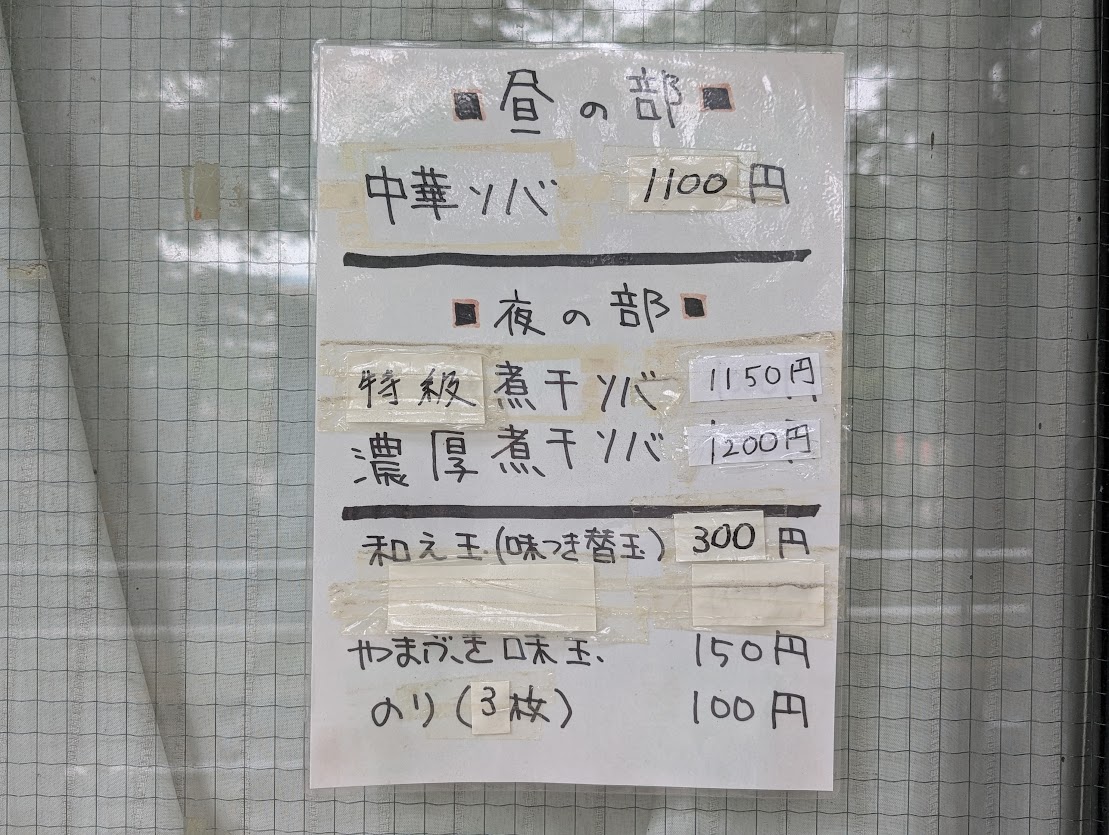 ■昼の部■
中華ソバ 1100円
■夜の部■
特級煮干ソバ 1150円
濃厚煮干ソバ 1200円
和え玉(味つき替玉) 300円
やまぶき味玉 150円
のり(3枚) 100円